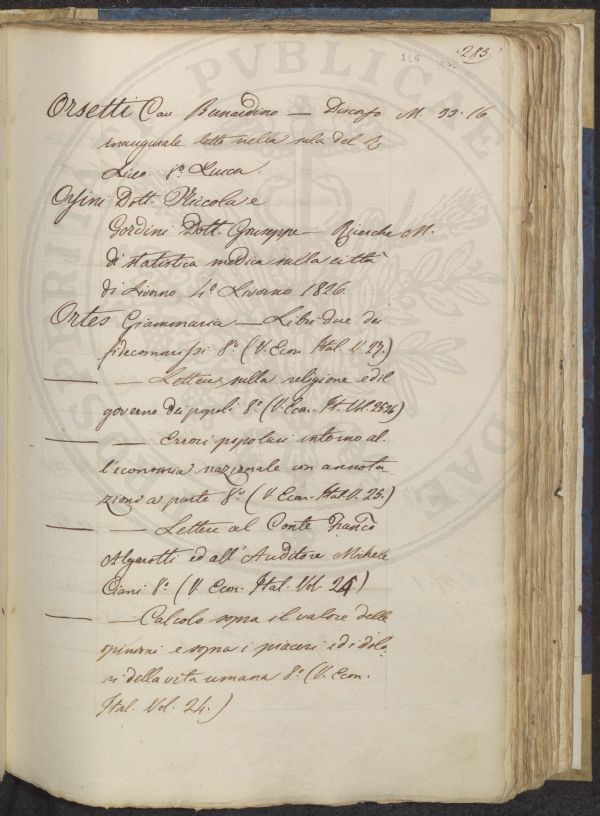 285
Orsetti Cav Bernardino — Discorso M. 33.16
inaugurale letto nella sala del R
Liceo. 8º Lucca.
Orsini Dott. Niccola e
Gordini Dott. Giuseppe — Ricerche M.
di statistica medica sulla città
di Livorno 4º Livorno 1826.
Ortes Giammaria — Libri due dei
fidecommissi 8º (V. Econ. Ital. V. 27.)
— — Lettere sulla religione ed il
governo dei popoli 8º (V. Econ. It. Vol. 25.26)
— — Errori popolari intorno al-
l'economia nazionale con annota
zioni a parte 8º (V. Econ. Ital. V. 25.)
— — Lettere al Conte Franco
Algarotti ed all'Auditore Michele
Ciani 8º (V. Econ. Ital. Vol. 24)
— — Calcolo sopra il valore delle
opinioni e sopra i piaceri ed i dolo
ri della vita umana 8º (V. Econ.
Ital. Vol. 24.)
PVBLICAE